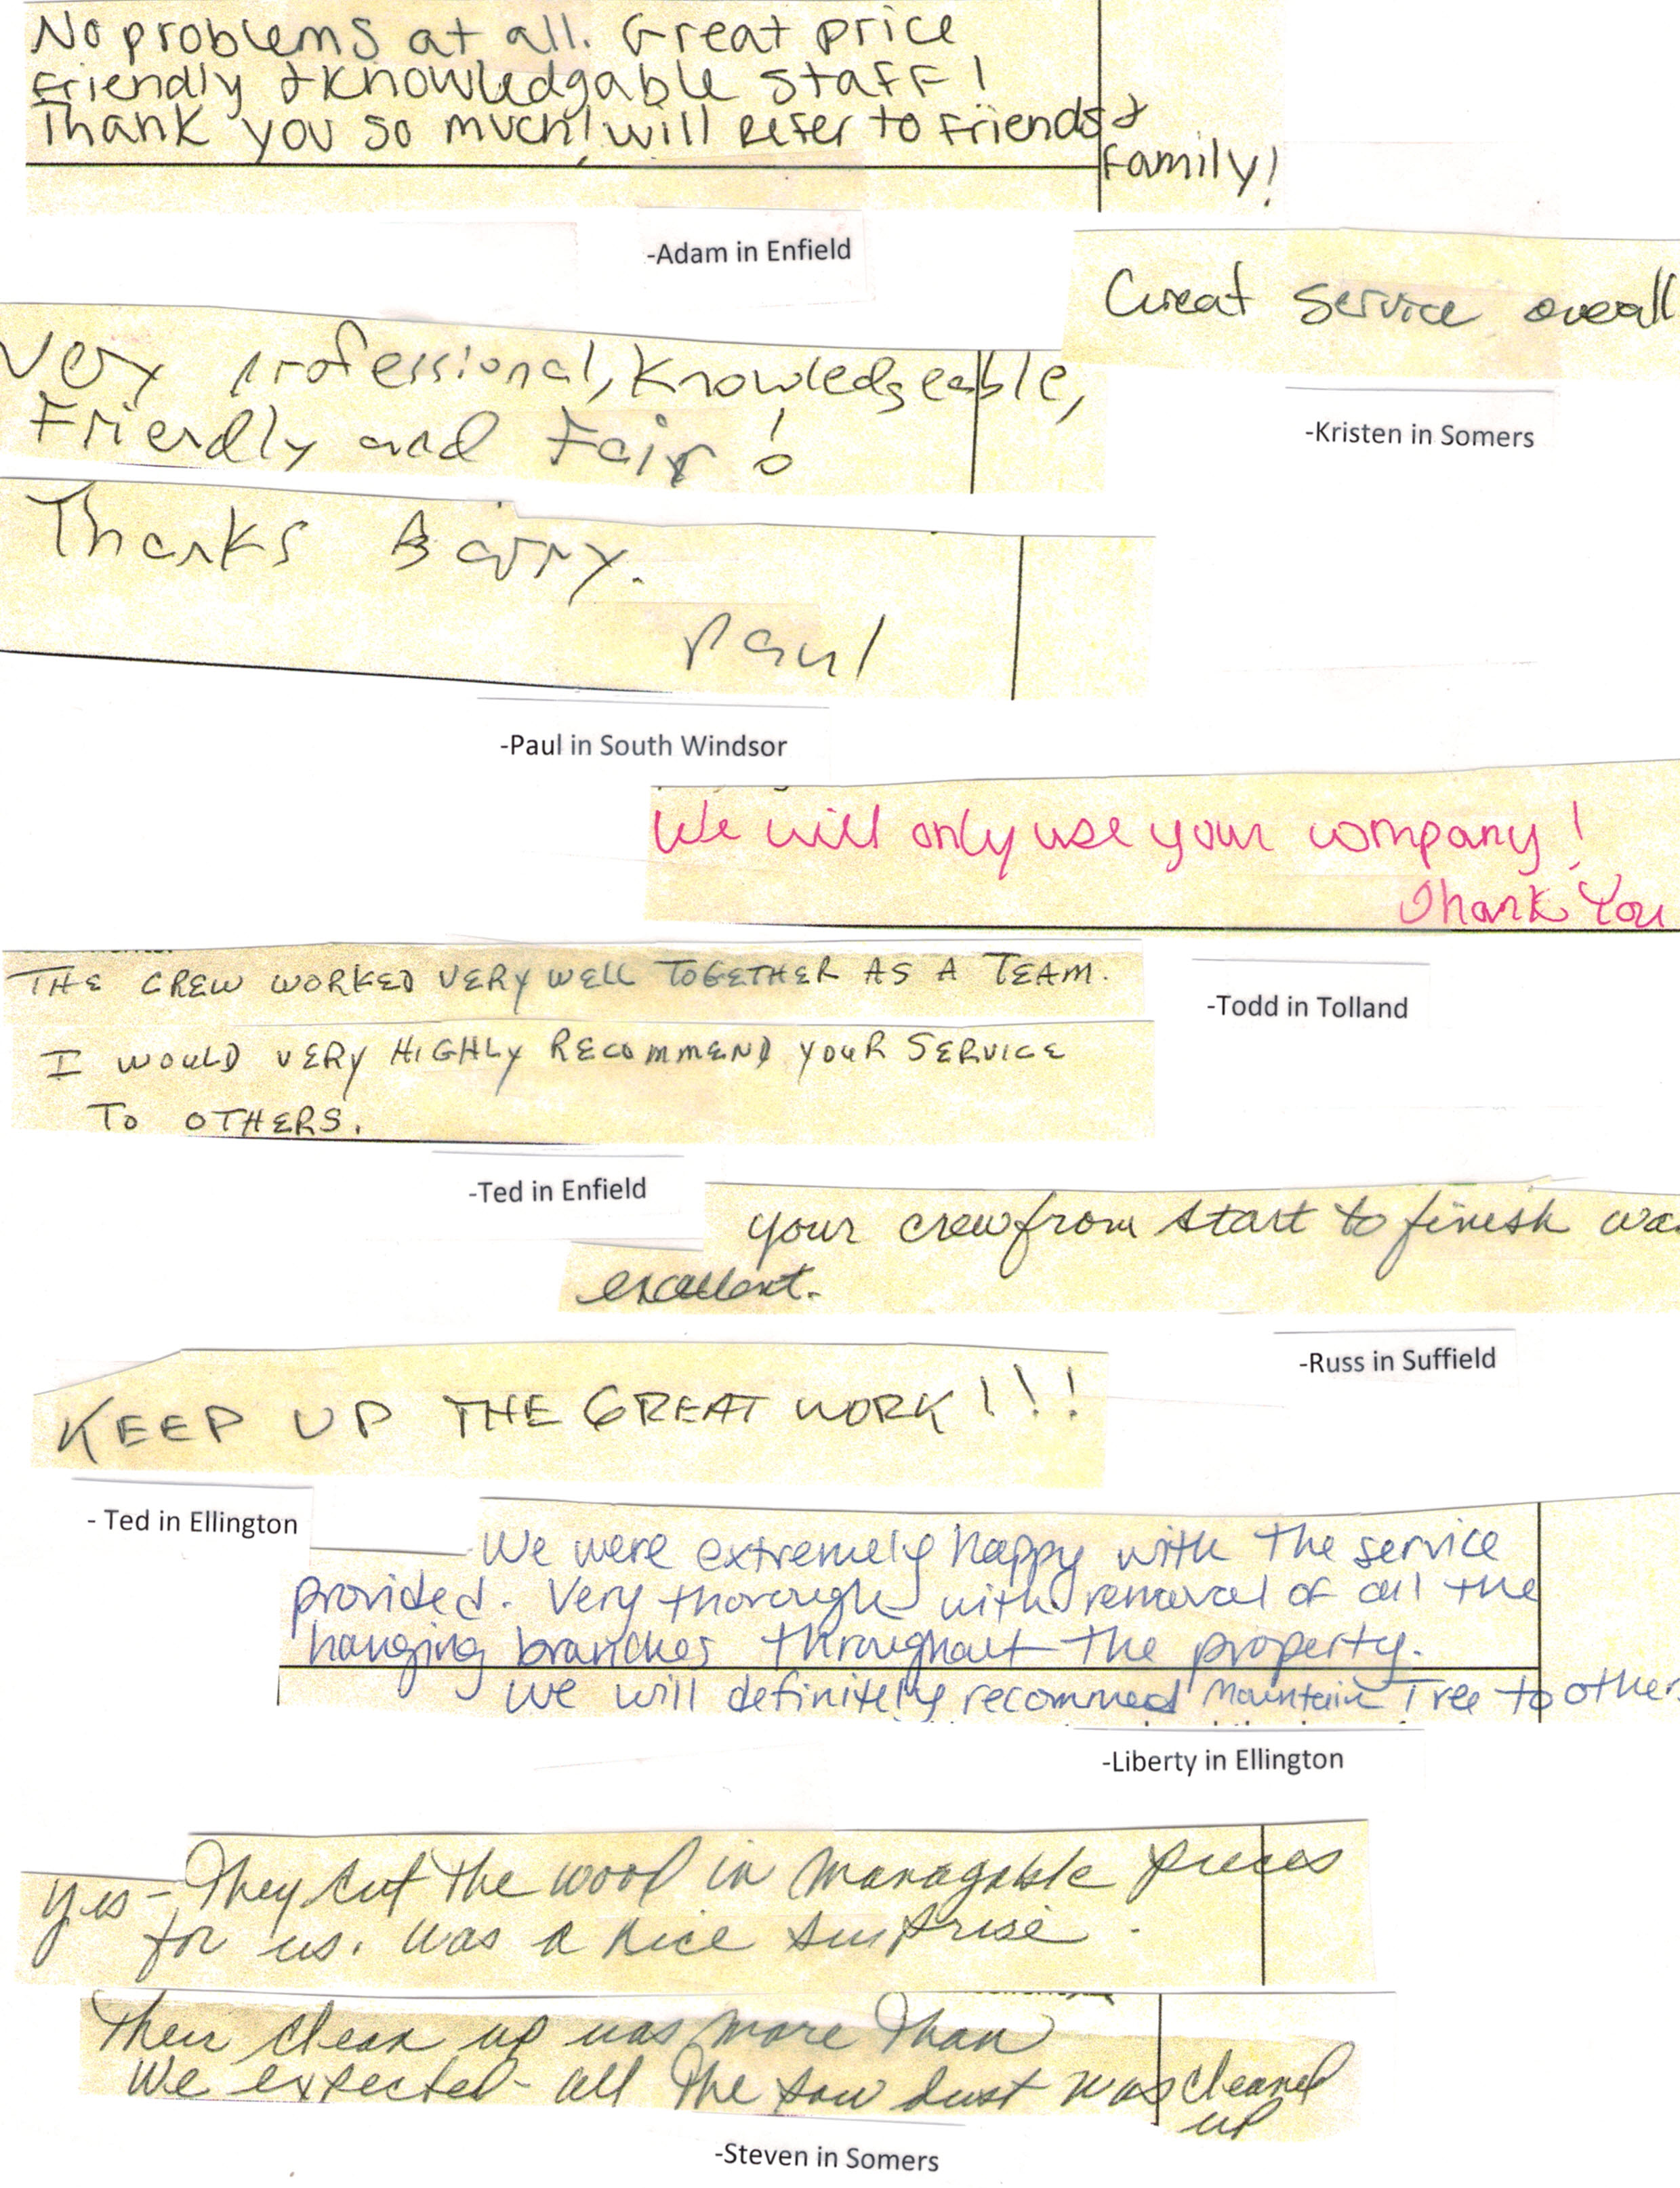 No problems at all. Great price
Friendly & Knowledgable staff!
Thank you so much! will refer to friends &
family!
-Adam in Enfield
Great service overall
-Kristen in Somers
Very professional, Knowledgeable,
Friendly and Fair!
Thanks Barry.
Paul
-Paul in South Windsor
We will only use your company!
Thank You
-Todd in Tolland
THE CREW WORKED VERY WELL TOGETHER AS A TEAM.
I WOULD VERY HIGHLY RECOMMEND YOUR SERVICE
TO OTHERS.
-Ted in Enfield
your crew from start to finish wa
excellent.
-Russ in Suffield
KEEP UP THE GREAT WORK!!!
- Ted in Ellington
We were extremely happy with the service
provided. Very thorough with removal of all the
hanging branches throughout the property.
We will definitely recommed Mountain Tree to other
-Liberty in Ellington
yes - They cut the wood in managable pieces
for us. Was a nice surprise.
Their clean up was more than
We expected - all the saw dust was cleaned
up
-Steven in Somers